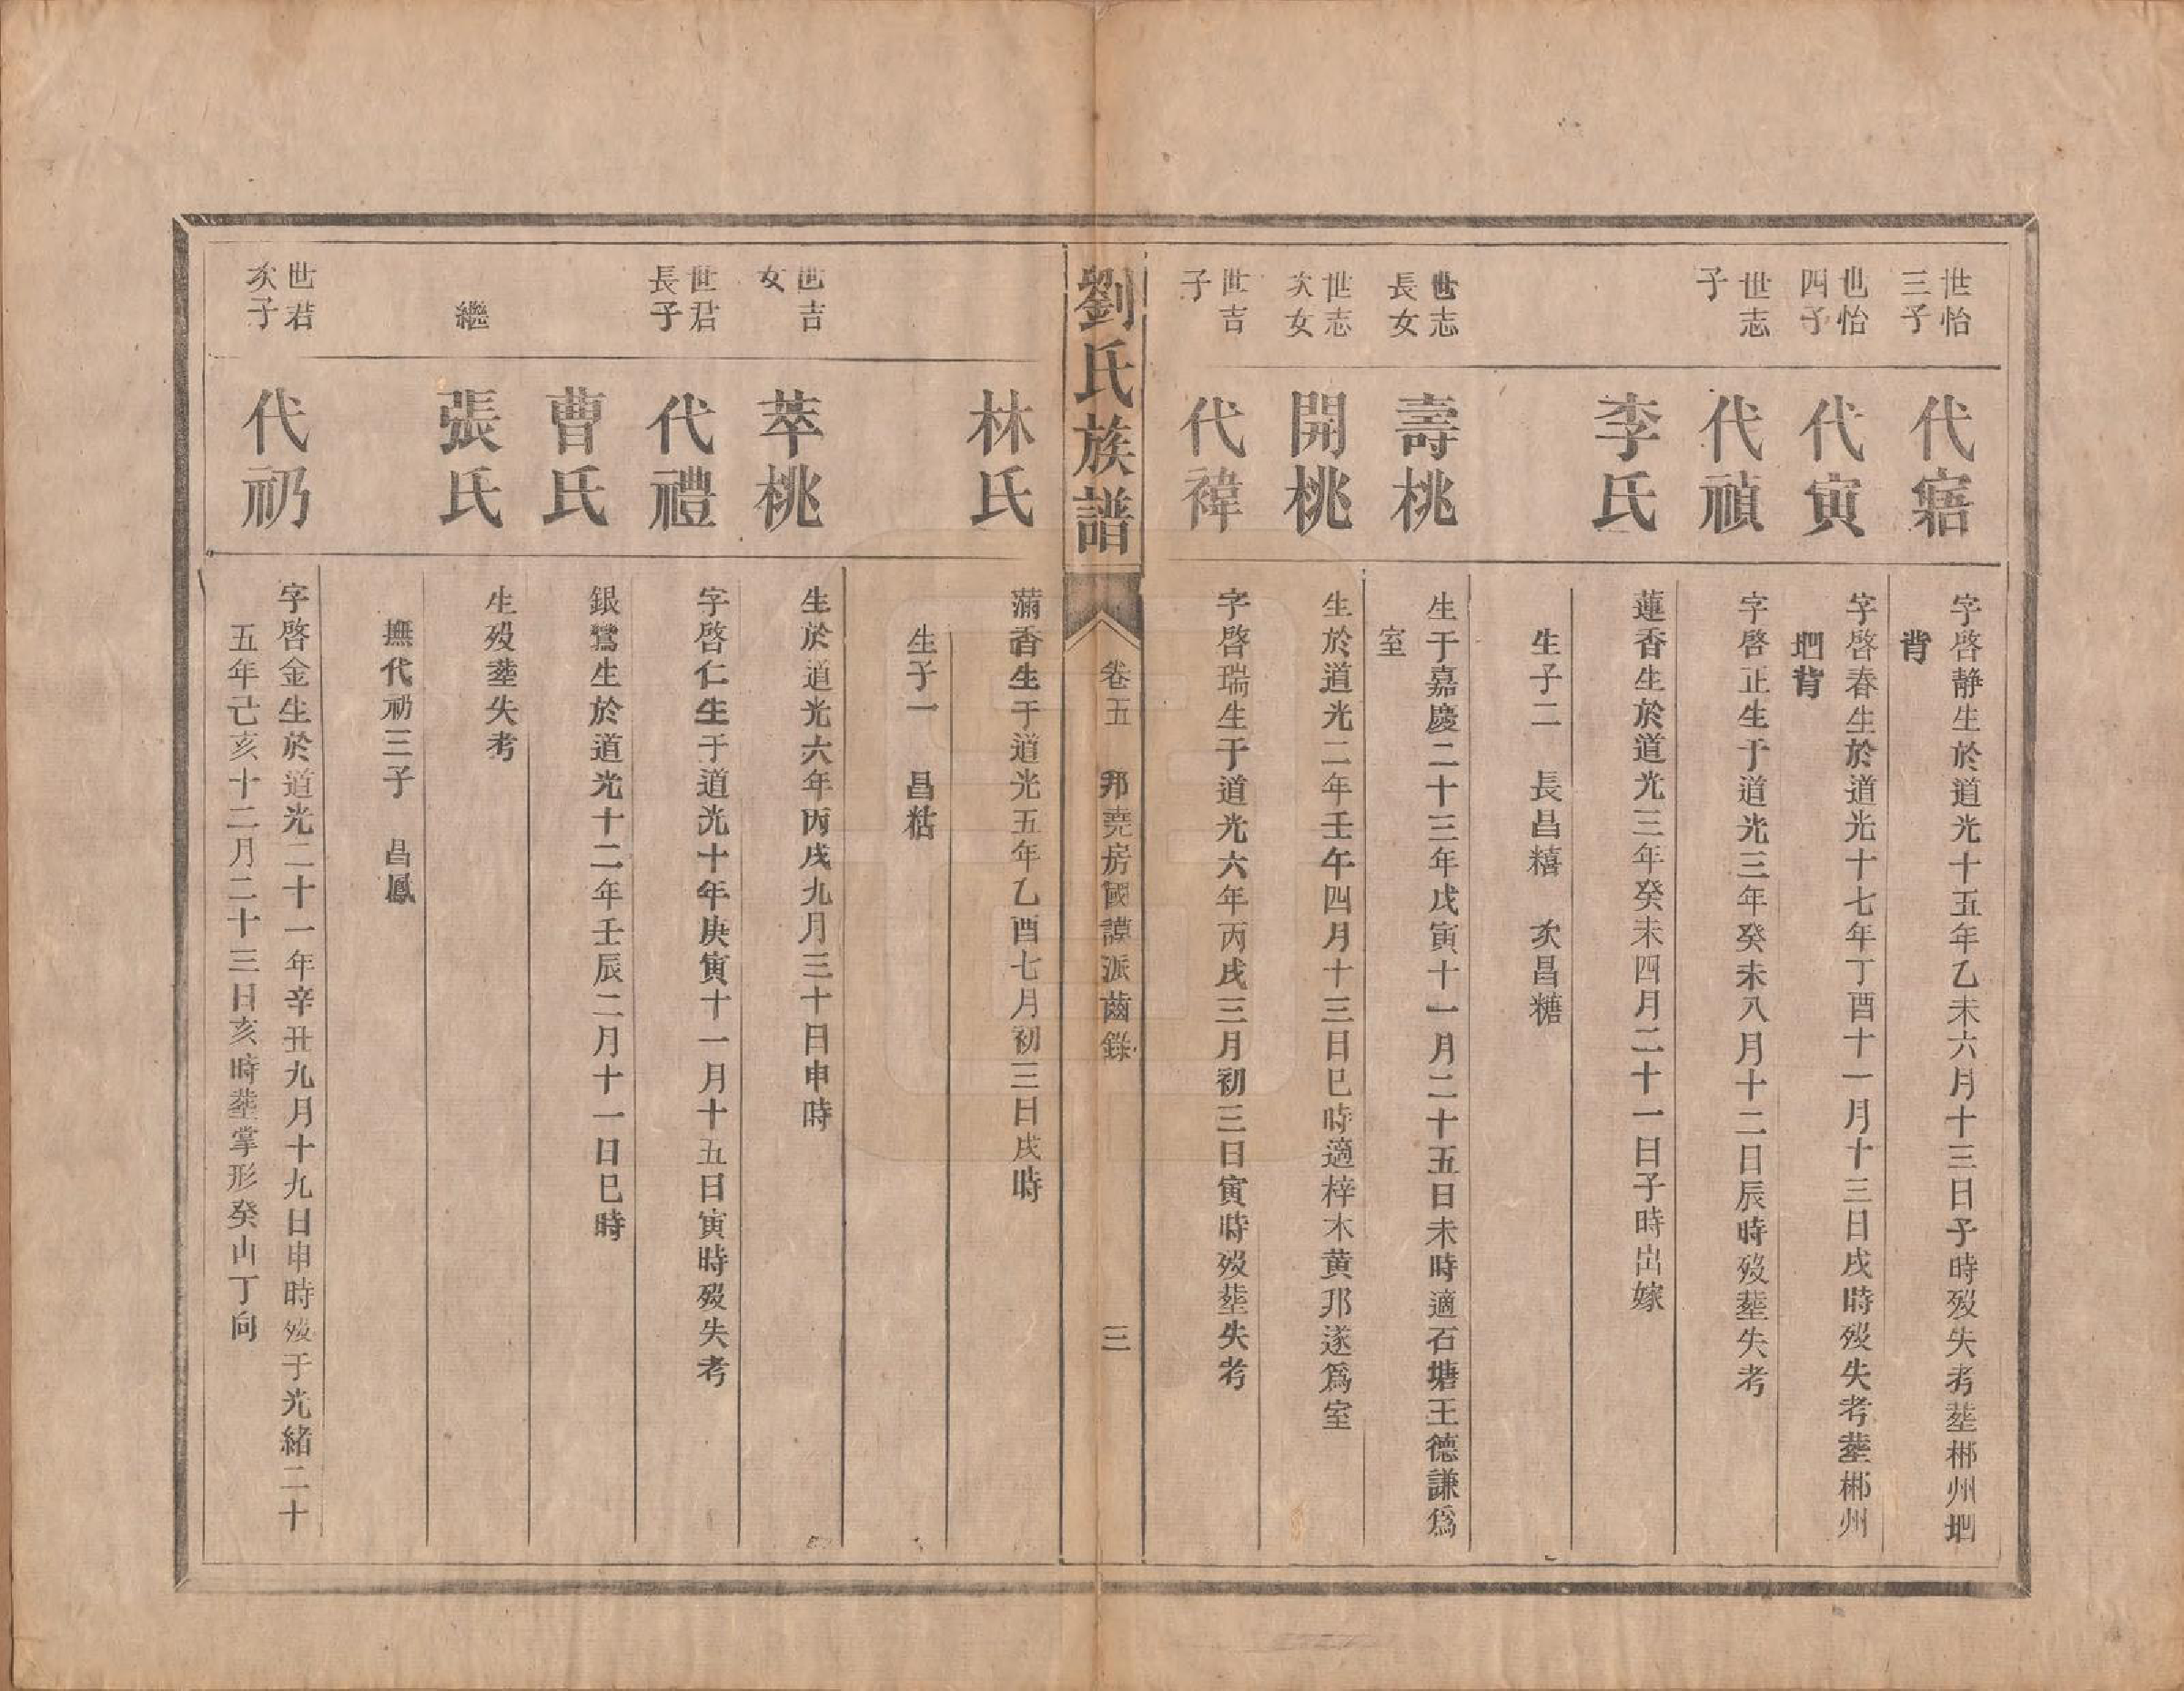 世怡
三子
代𡪢
字啓静生於道光十五年乙未六月十三日子時歿失考塟郴州垇
背
世怡
四子
代寅
字啓春生於道光十七年丁酉十一月十三日戌時歿失考塟郴州
垇背
世志
子
代禎
字啓正生于道光三年癸未八月十二日辰時歿塟失考
李氏
蓮香生於道光三年癸未四月二十一日子時出嫁
生子二　長昌糦　次昌糖
世志
長女
壽桃
生于嘉慶二十三年戊寅十一月二十五日未時適石塘王德謙爲
室
世志
次女
開桃
生於道光二年壬午四月十三日巳時適梓木黄邦遂爲室
世吉
子
代禕
字啓瑞生于道光六年丙戌三月初三日寅時歿塟失考
劉氏族譜
卷五　邦堯房國謨派齒錄
三
林氏
滿香生于道光五年乙酉七月初三日戌時
生子一　昌粘
世吉
女
萃桃
生於道光六年丙戌九月三十日申時
世君
長子
代禮
字啓仁生于道光十年庚寅十一月十五日寅時歿失考
曹氏
銀鸞生於道光十二年壬辰二月十一日巳時
繼
張氏
生歿塟失考
撫代礽三子　昌鳳
世君
次子
代礽
字啓金生於道光二十一年辛丑九月十九日申時歿于光緒二十
五年己亥十二月二十三日亥時塟掌形癸山丁向